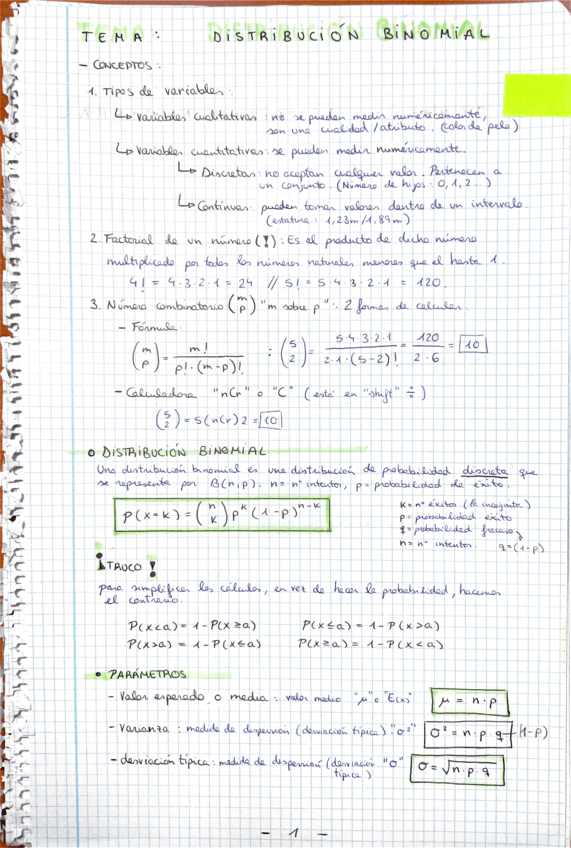 TEMA: DISTRIBUCIÓN BINOMIAL
- CONCEPTOS:
1. Tipos de variables:
↳ variables cualitativas: no se pueden medir numéricamente,
son una cualidad/atributo. (color de pelo)
↳ variables cuantitativas: se pueden medir numéricamente.
↳ Discretas: no aceptan cualquier valor. Pertenecen a
un conjunto. (Número de hijos: 0, 1, 2...)
↳ Contínuas: pueden tomar valores dentro de un intervalo.
(estatura: 1,23m/1,89m)
2. Factorial de un número (!): Es el producto de dicho número
multiplicado por todos los números naturales menores que el hasta 1.
4! = 4·3·2·1 = 24 // 5! = 5·4·3·2·1 = 120.
3. Número combinatorio (m p) "m sobre p": 2 formas de calcular.
- Fórmula:
(m p) = m! / p!·(m-p)! : (5 2) = 5·4·3·2·1 / 2·1·(5-2)! = 120 / 2·6 = 10
- Calculadora "nCr" o "C" (está en "shift" ÷)
(5 2) = 5(nCr)2 = 10
• DISTRIBUCIÓN BINOMIAL
Una distribución binomial es una distribución de probabilidad discreta que
se representa por B(n,p). n = nº intentos, p = probabilidad de éxito.
P(x=k) = (n k) p^k (1-p)^n-k
K = nº éxitos (la incógnita)
p = probabilidad éxito
q = probabilidad fracaso
n = nº intentos. q=(1-p)
¡TRUCO!
para simplificar los cálculos, en vez de hacer la probabilidad, hacemos
el contrario.
P(x<a) = 1-P(x≥a) P(x≤a) = 1-P(x>a)
P(x>a) = 1-P(x≤a) P(x≥a) = 1-P(x<a)
• PARÁMETROS
- Valor esperado o media: valor medio "μ" o "E(x)" μ = n·p
- Varianza: medida de dispersión (desviación típica) "σ²" σ² = n·p·q (1-p)
- desviación típica: medida de dispersión (desviación "σ" σ = √n·p·q
típica)
- 1 -